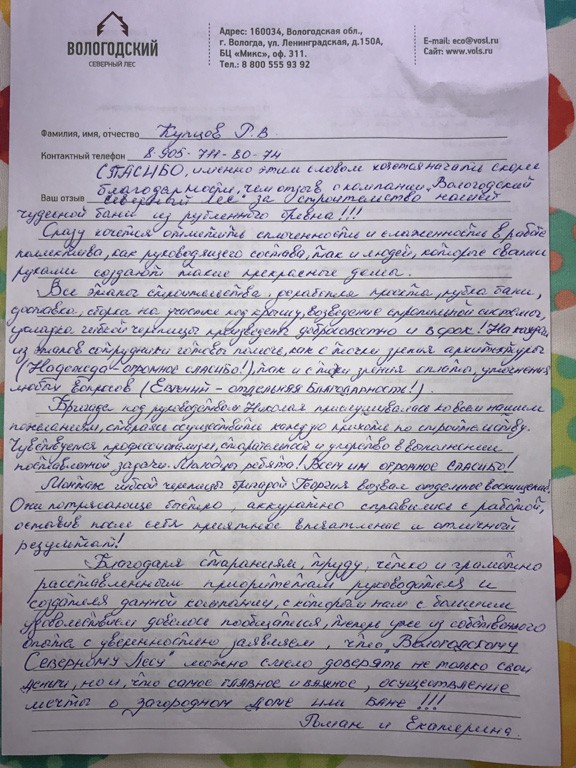 ВОЛОГОДСКИЙ
СЕВЕРНЫЙ ЛЕС
Адрес: 160034, Вологодская обл.,
г. Вологда, ул. Ленинградская, д.150А,
БЦ «Микс», оф. 311.
Тел.: 8 800 555 93 92
E-mail: eco@vosl.ru
Сайт: www.vols.ru
Фамилия, имя, отчество Купцов Р.В.
Контактный телефон 8 905-711-80-74
СПАСИБО, именно этим словом хочется начать скорее
благодарность, чем отзыв о компании „Вологодский
Ваш отзыв Северный Лес" за строительство нашей
чудесной бани из рубленного бревна!!!
Сразу хочется отметить сплоченность и слаженность в работе
коллектива, как руководящего состава, так и людей, которые своими
руками создают такие прекрасные дома.
Все этапы строительства, разработка проекта, рубка бани,
доставка, сборка на участке под крышу, возведение стропильной системы,
укладка гибкой черепицы произведены добросовестно и в срок! На каждом
из этапов сотрудники готовы помочь, как с точки зрения архитектуры
(Надежда - огромное спасибо!), так и с точки зрения оплаты, уточнения
любых вопросов (Евгений - отдельная благодарность!).
Бригада под руководством Николая прислушивалась ко всем нашим
пожеланиям, стараясь осуществить каждую прихоть по строительству.
Чувствуется профессионализм, старательность и упорство в выполнении
поставленной задачи. Молодцы ребята! Всем им огромное спасибо!
Монтаж гибкой черепицы бригадой Георгия вызвал отдельное восхищение.
Они потрясающе быстро, аккуратно справились с работой,
оставив после себя приятное впечатление и отличный
результат!
Благодаря стараниям, труду, четко и грамотно
расставленным приоритетам руководителя и
создателя данной компании, с которым нам с большим
удовольствием довелось пообщаться, теперь уже из собственного
опыта с уверенностью заявляем, что „Вологодскому
Северному Лесу" можно смело доверять не только свои
деньги, но и, что самое главное и важное, осуществление
мечты о загородном доме или бане!!!
Роман и Екатерина.